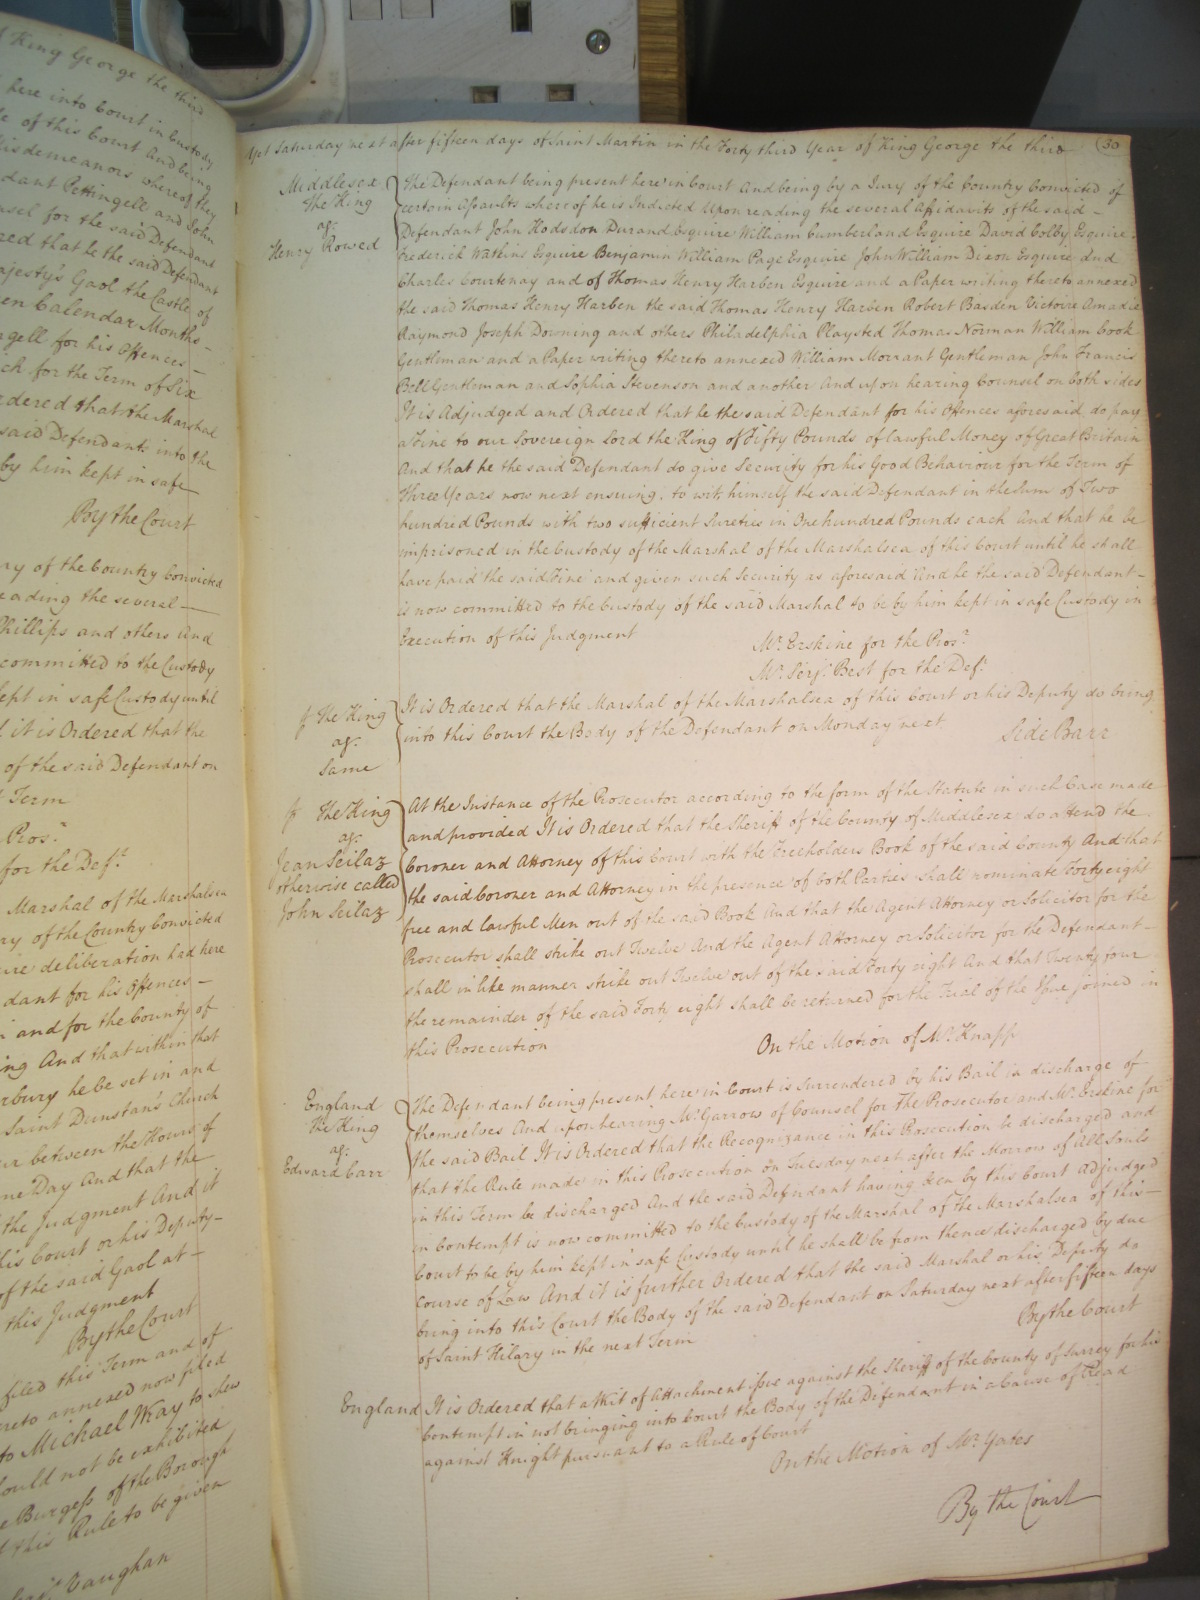 of King George the third
here into Court in Custody
of this Court And being
Misdemeanors whereof they
Pettingell and John
for the said Defendant
that he the said Defendant
Majesty's Gaol the Castle of
Calendar Months
for his Offences
for the Term of Six
Ordered that the Marshal
said Defendants into the
by him kept in safe
By the Court
of the Country Convicted
reading the several
Phillips and others And
committed to the Custody
kept in safe Custody until
it is Ordered that the
of the said Defendant on
Term
Pros.r
for the Def.t
Marshal of the Marshalsea
of the Country Convicted
deliberation had here
for his Offences
and for the County of
And that within that
he be set in and
Saint Dunstan's Church
between the Hours of
one Day And that the
the Judgment And it
this Court or his Deputy
of the said Gaol at
this Judgment
By the Court
filed this Term and of
annexed now filed
to Michael Way to shew
should not be exhibited
Burgess of the Borough
this Rule to be given
Vaughan
Yet Saturday next after fifteen days of Saint Martin in the Forty third Year of King George the third
30
Middlesex
The King
ag.t
Henry Rowed
The Defendant being present here in Court And being by a Jury of the Country Convicted of
certain Assaults whereof he is Indicted Upon reading the several Affidavits of the said
Defendant John Hodsdon Durand Esquire William Cumberland Esquire David Colby Esquire
Frederick Watkins Esquire Benjamin William Page Esquire John William Dixon Esquire and
Charles Courtenay and of Thomas Henry Harben Esquire and a Paper writing thereto annexed
the said Thomas Henry Harben the said Thomas Henry Harben Robert Basden Victoire Amadie
Raymond Joseph Downing and others Philadelphia Playsted Thomas Norman William Cook
Gentleman and a Paper writing thereto annexed William Morrant Gentleman John Francis
Bell Gentleman and Sophia Stevenson and another And upon hearing Counsel on both sides
It is Adjudged and Ordered that he the said Defendant for his Offences aforesaid do pay
a Fine to our Sovereign Lord the King of Fifty Pounds of lawful Money of Great Britain
And that he the said Defendant do give Security for his Good Behaviour for the Term of
Three Years now next ensuing, to wit, himself the said Defendant in the Sum of Two
hundred Pounds with two sufficient Sureties in One hundred Pounds each And that he be
imprisoned in the Custody of the Marshal of the Marshalsea of this Court until he shall
have paid the said Fine and given such Security as aforesaid And he the said Defendant
is now committed to the Custody of the said Marshal to be by him kept in safe Custody in
Execution of this Judgment
Mr. Erskine for the Pros.r
Mr. Serj.t Best for the Def.t
The King
ag.t
Same
It is Ordered that the Marshal of the Marshalsea of this Court or his Deputy do bring
into this Court the Body of the Defendant on Monday next
Side Barr
The King
ag.t
Jean Seilaz
otherwise called
John Seilaz
At the Instance of the Prosecutor according to the form of the Statute in such Case made
and provided It is Ordered that the Sheriff of the County of Middlesex do attend the
Coroner and Attorney of this Court with the Freeholders Book of the said County And that
the said Coroner and Attorney in the presence of both Parties shall nominate Forty eight
free and lawful Men out of the said Book And that the Agent Attorney or Solicitor for the
Prosecutor shall strike out Twelve And the Agent Attorney or Solicitor for the Defendant
shall in like manner strike out Twelve out of the said Forty eight And that Twenty four
the remainder of the said Forty eight shall be returned for the Trial of the Issue joined in
this Prosecution
On the Motion of Mr. Knapp
England
The King
ag.t
Edward Carr
The Defendant being present here in Court is Surrendered by his Bail in discharge of
themselves And upon hearing Mr. Garrow of Counsel for The Prosecutor and Mr. Erskine for
the said Bail It is Ordered that the Recognizance in this Prosecution be discharged and
that the Rule made in this Prosecution on Tuesday next after the Morrow of All Souls
in this Term be discharged And the said Defendant having been by this Court Adjudged
in Contempt is now committed to the Custody of the Marshal of the Marshalsea of this
Court to be by him kept in safe Custody until he shall be from thence discharged by due
course of Law And it is further Ordered that the said Marshal or his Deputy do
bring into this Court the Body of the said Defendant on Saturday next after fifteen days
of Saint Hilary in the next Term
By the Court
England
It is Ordered that a Writ of Attachment issue against the Sheriff of the County of Surrey for his
Contempt in not bringing into Court the Body of the Defendant in a Cause of Read
against Knight pursuant to a Rule of Court
On the Motion of Mr. Yates
By the Court